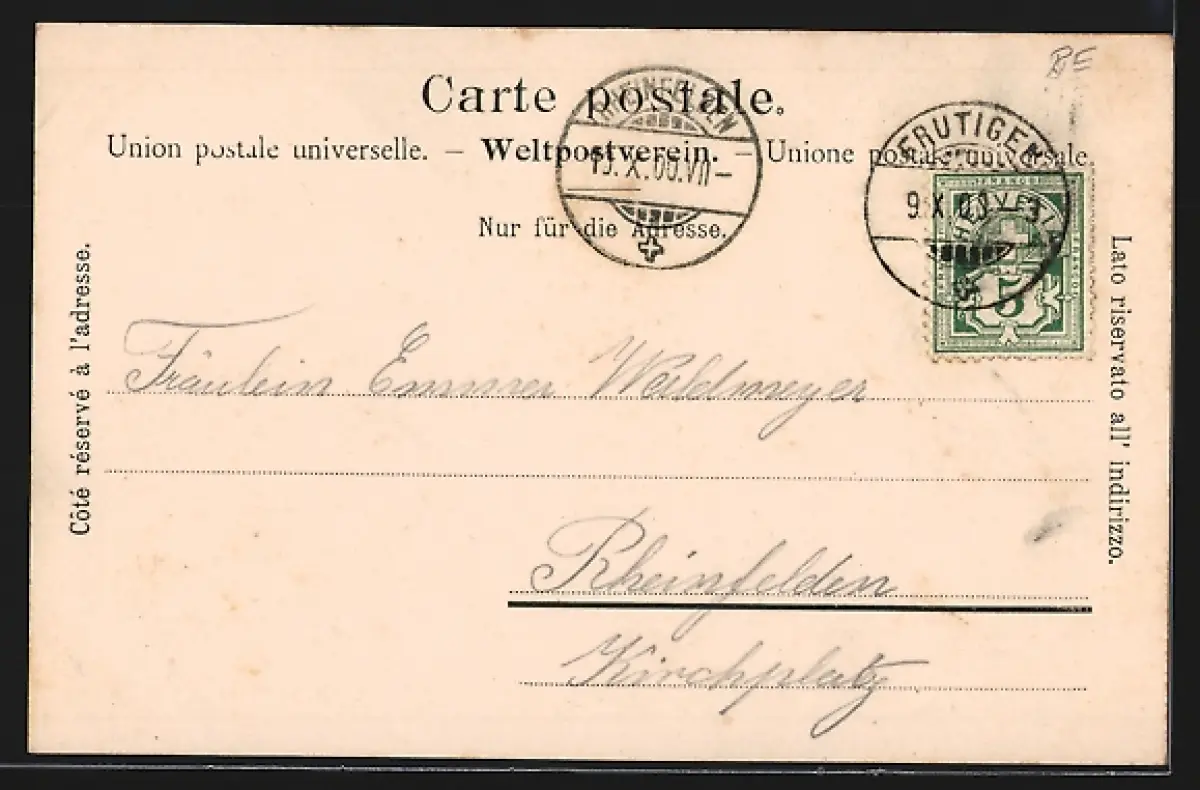 BE
Carte postale.
Union postale universelle. – Weltpostverein. – Unione postale universale.
Nur für die Adresse.
RHEINFELDEN
X.
VII–
FRUTIGEN
9. X.
FRANCO
HELVETIA
5
Côté réservé à l'adresse.
Lato riservato all' indirizzo.
Fräulein Emma
Rheinfelden
Kirchplatz